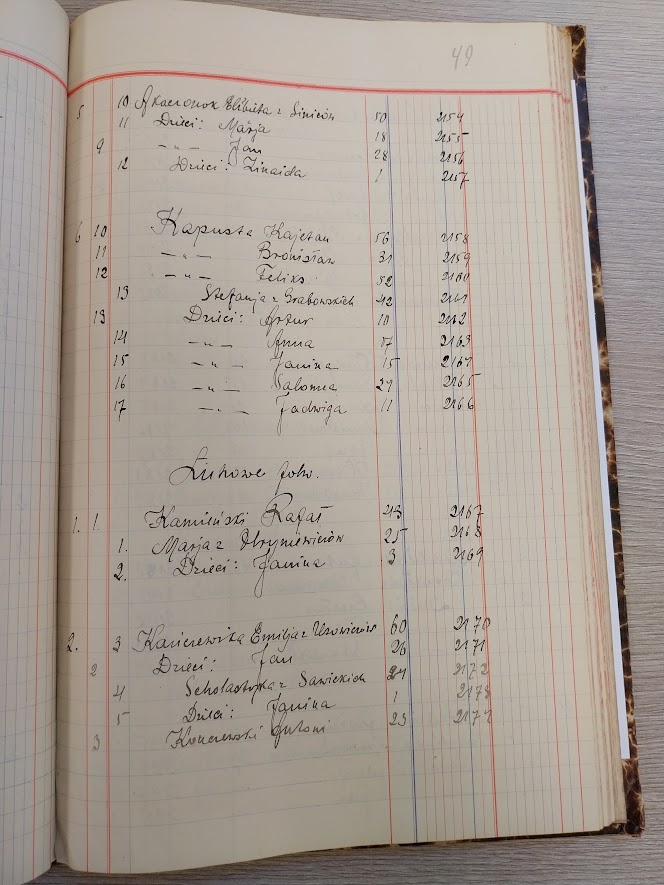 49
5 10 Akacionok Elżbieta z Siniców 50 2154
11 Dzieci: Marja 18 2155
9 -„- Jan 28 2156
12 Dzieci: Zinaida 1 2157
6 10 Kapusta Kajetan 56 2158
11 -„- Bronisław 31 2159
12 -„- Feliks 52 2160
13 Stefanja z Grabowskich 42 2161
13 Dzieci: Artur 10 2162
14 -„- Anna 17 2163
15 -„- Janina 15 2164
16 -„- Salomea 2165
17 -„- Jadwiga 11 2166
folw.
1. 1. Kamiński Rafał 43 2167
1. Marja z Hryniewiczów 25 2168
2. Dzieci: Janina 3 2169
2. 3 Emilja z 60 2170
2 Dzieci: Jan 26 2171
4 Scholastyka z Sawickich 24 2172
5 Dzieci: Janina 1 2173
3 Konczewski Antoni 23 2174